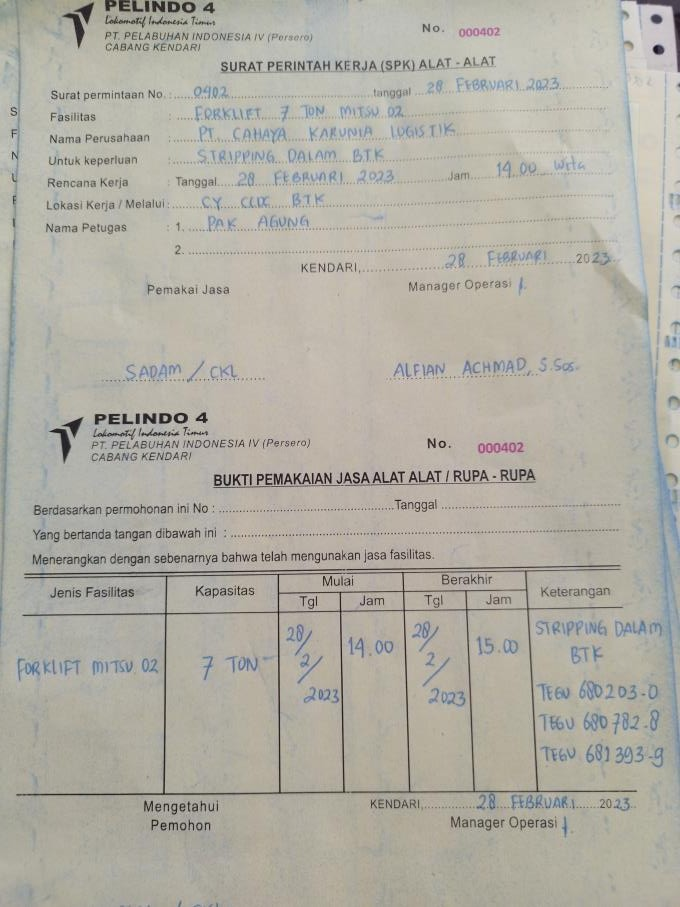 PELINDO 4
Lokomotif Indonesia Timur
PT. PELABUHAN INDONESIA IV (Persero)
CABANG KENDARI
No. 000402
SURAT PERINTAH KERJA (SPK) ALAT - ALAT
Surat permintaan No. : 0402 tanggal 28 FEBRUARI 2023
Fasilitas : FORKLIFT 7 TON MITSU 02
Nama Perusahaan : PT. CAHAYA KARUNIA LOGISTIK
Untuk keperluan : STRIPPING DALAM BTK
Rencana Kerja : Tanggal 28 FEBRUARI 2023 Jam 14.00 Wita
Lokasi Kerja / Melalui : CY CCDC BTK
Nama Petugas : 1. PAK AGUNG
2.
KENDARI, 28 FEBRUARI 2023
Pemakai Jasa Manager Operasi
SADAM / CKL ALFIAN ACHMAD, S.Sos.
PELINDO 4
Lokomotif Indonesia Timur
PT. PELABUHAN INDONESIA IV (Persero)
CABANG KENDARI
No. 000402
BUKTI PEMAKAIAN JASA ALAT ALAT / RUPA - RUPA
Berdasarkan permohonan ini No : Tanggal
Yang bertanda tangan dibawah ini :
Menerangkan dengan sebenarnya bahwa telah mengunakan jasa fasilitas.
Jenis Fasilitas Kapasitas Mulai Berakhir Keterangan
Tgl Jam Tgl Jam
FORKLIFT MITSU 02 7 TON 28/2/2023 14.00 28/2/2023 15.00 STRIPPING DALAM
BTK
TEGU 680203-0
TEGU 680782-8
TEGU 681393-9
Mengetahui KENDARI, 28 FEBRUARI 2023
Pemohon Manager Operasi